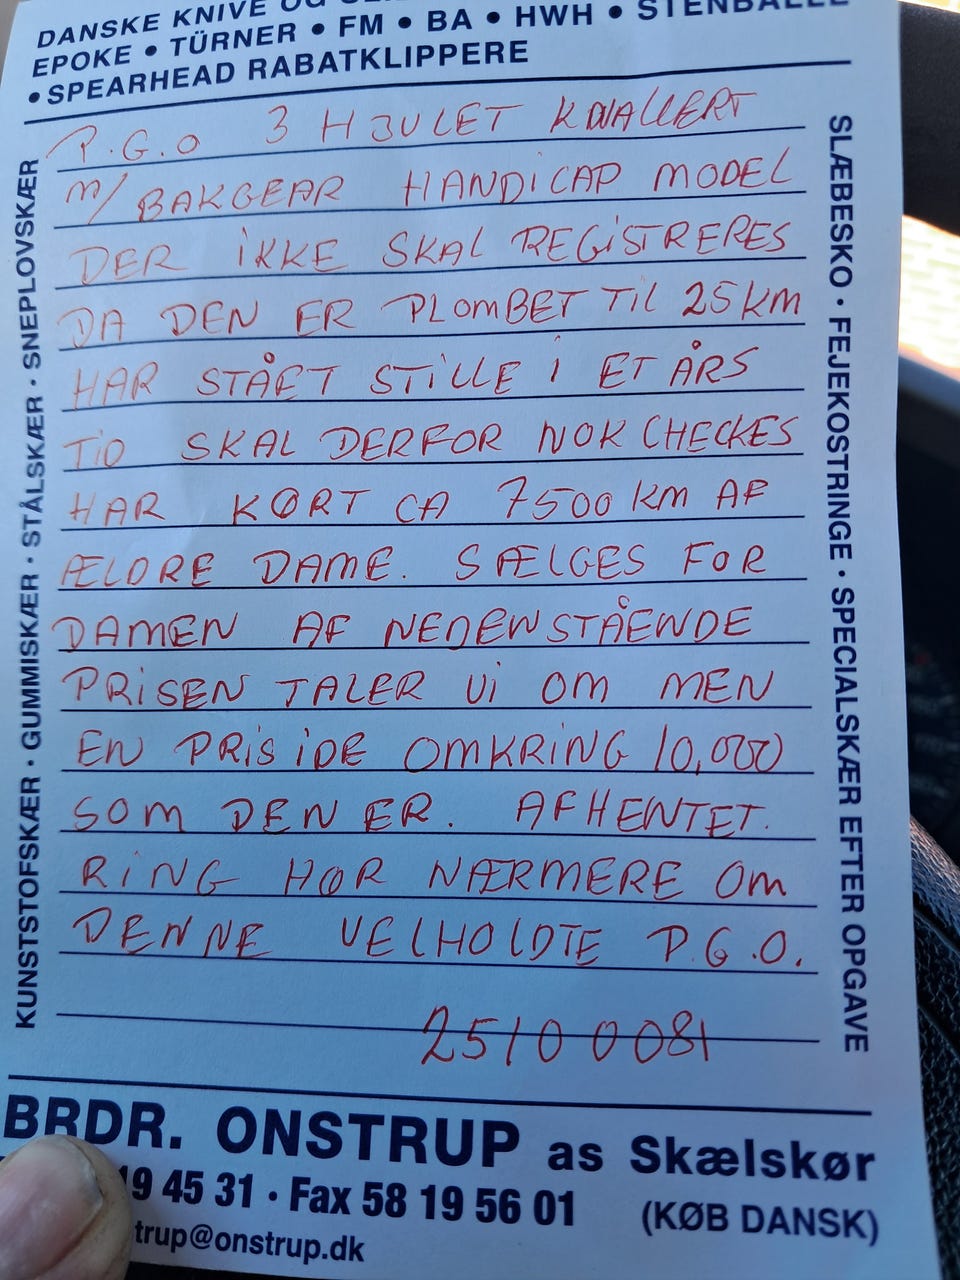 DANSKE KNIVE OG
EPOKE • TÜRNER • FM • BA • HWH • STENBALLE
• SPEARHEAD RABATKLIPPERE
P.G.O 3 HJULET KNALLERT
m/ BAKGEAR HANDICAP MODEL
DER IKKE SKAL REGISTRERES
DA DEN ER PLOMBET TIL 25 KM
HAR STÅET STILLE I ET ÅRS
TID SKAL DERFOR NOK CHECKES
HAR KØRT CA 7500 KM AF
ÆLDRE DAME. SÆLGES FOR
DAMEN AF NEDENSTÅENDE
PRISEN TALER VI OM MEN
EN PRIS IDE OMKRING 10,000
SOM DEN ER. AFHENTET.
RING HØR NÆRMERE OM
DENNE VELHOLDTE P.G.O.
25100081
KUNSTSTOFSKÆR • GUMMISKÆR • STÅLSKÆR • SNEPLOVSKÆR
SLÆBESKO • FEJEKOSTRINGE • SPECIALSKÆR EFTER OPGAVE
BRDR. ONSTRUP as Skælskør
19 45 31 • Fax 58 19 56 01 (KØB DANSK)
trup@onstrup.dk